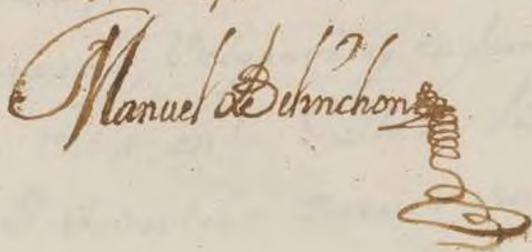 Manuel de Belinchon